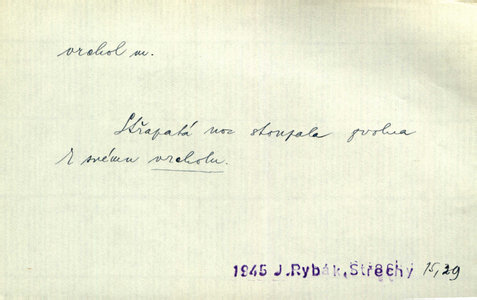 vrchol m.
Střapatá noc stoupala zvolna
k svému vrcholu.
1945 J.Rybák,Střechy 15,29